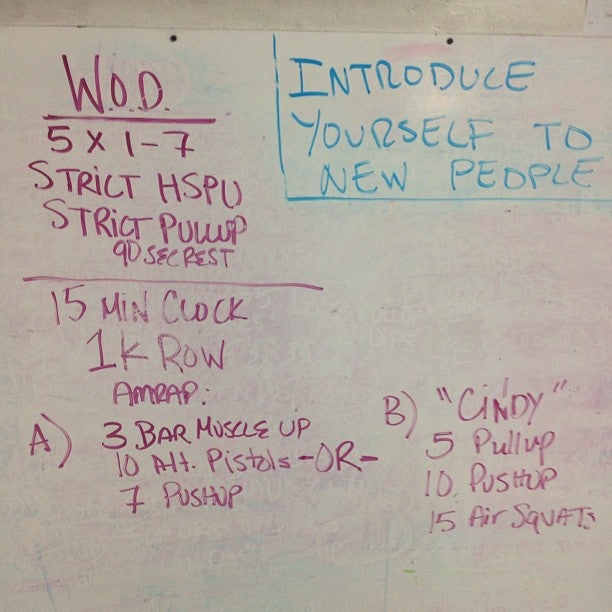 W.O.D.
5 X 1-7
STRICT HSPU
STRICT PULLUP
90 SEC REST
INTRODUCE
YOURSELF TO
NEW PEOPLE
15 MIN CLOCK
1K ROW
AMRAP:
A) 3 BAR MUSCLE UP
10 Alt. Pistols -OR-
7 PUSHUP
B) "CINDY"
5 Pullup
10 PUSHUP
15 Air SQUATS